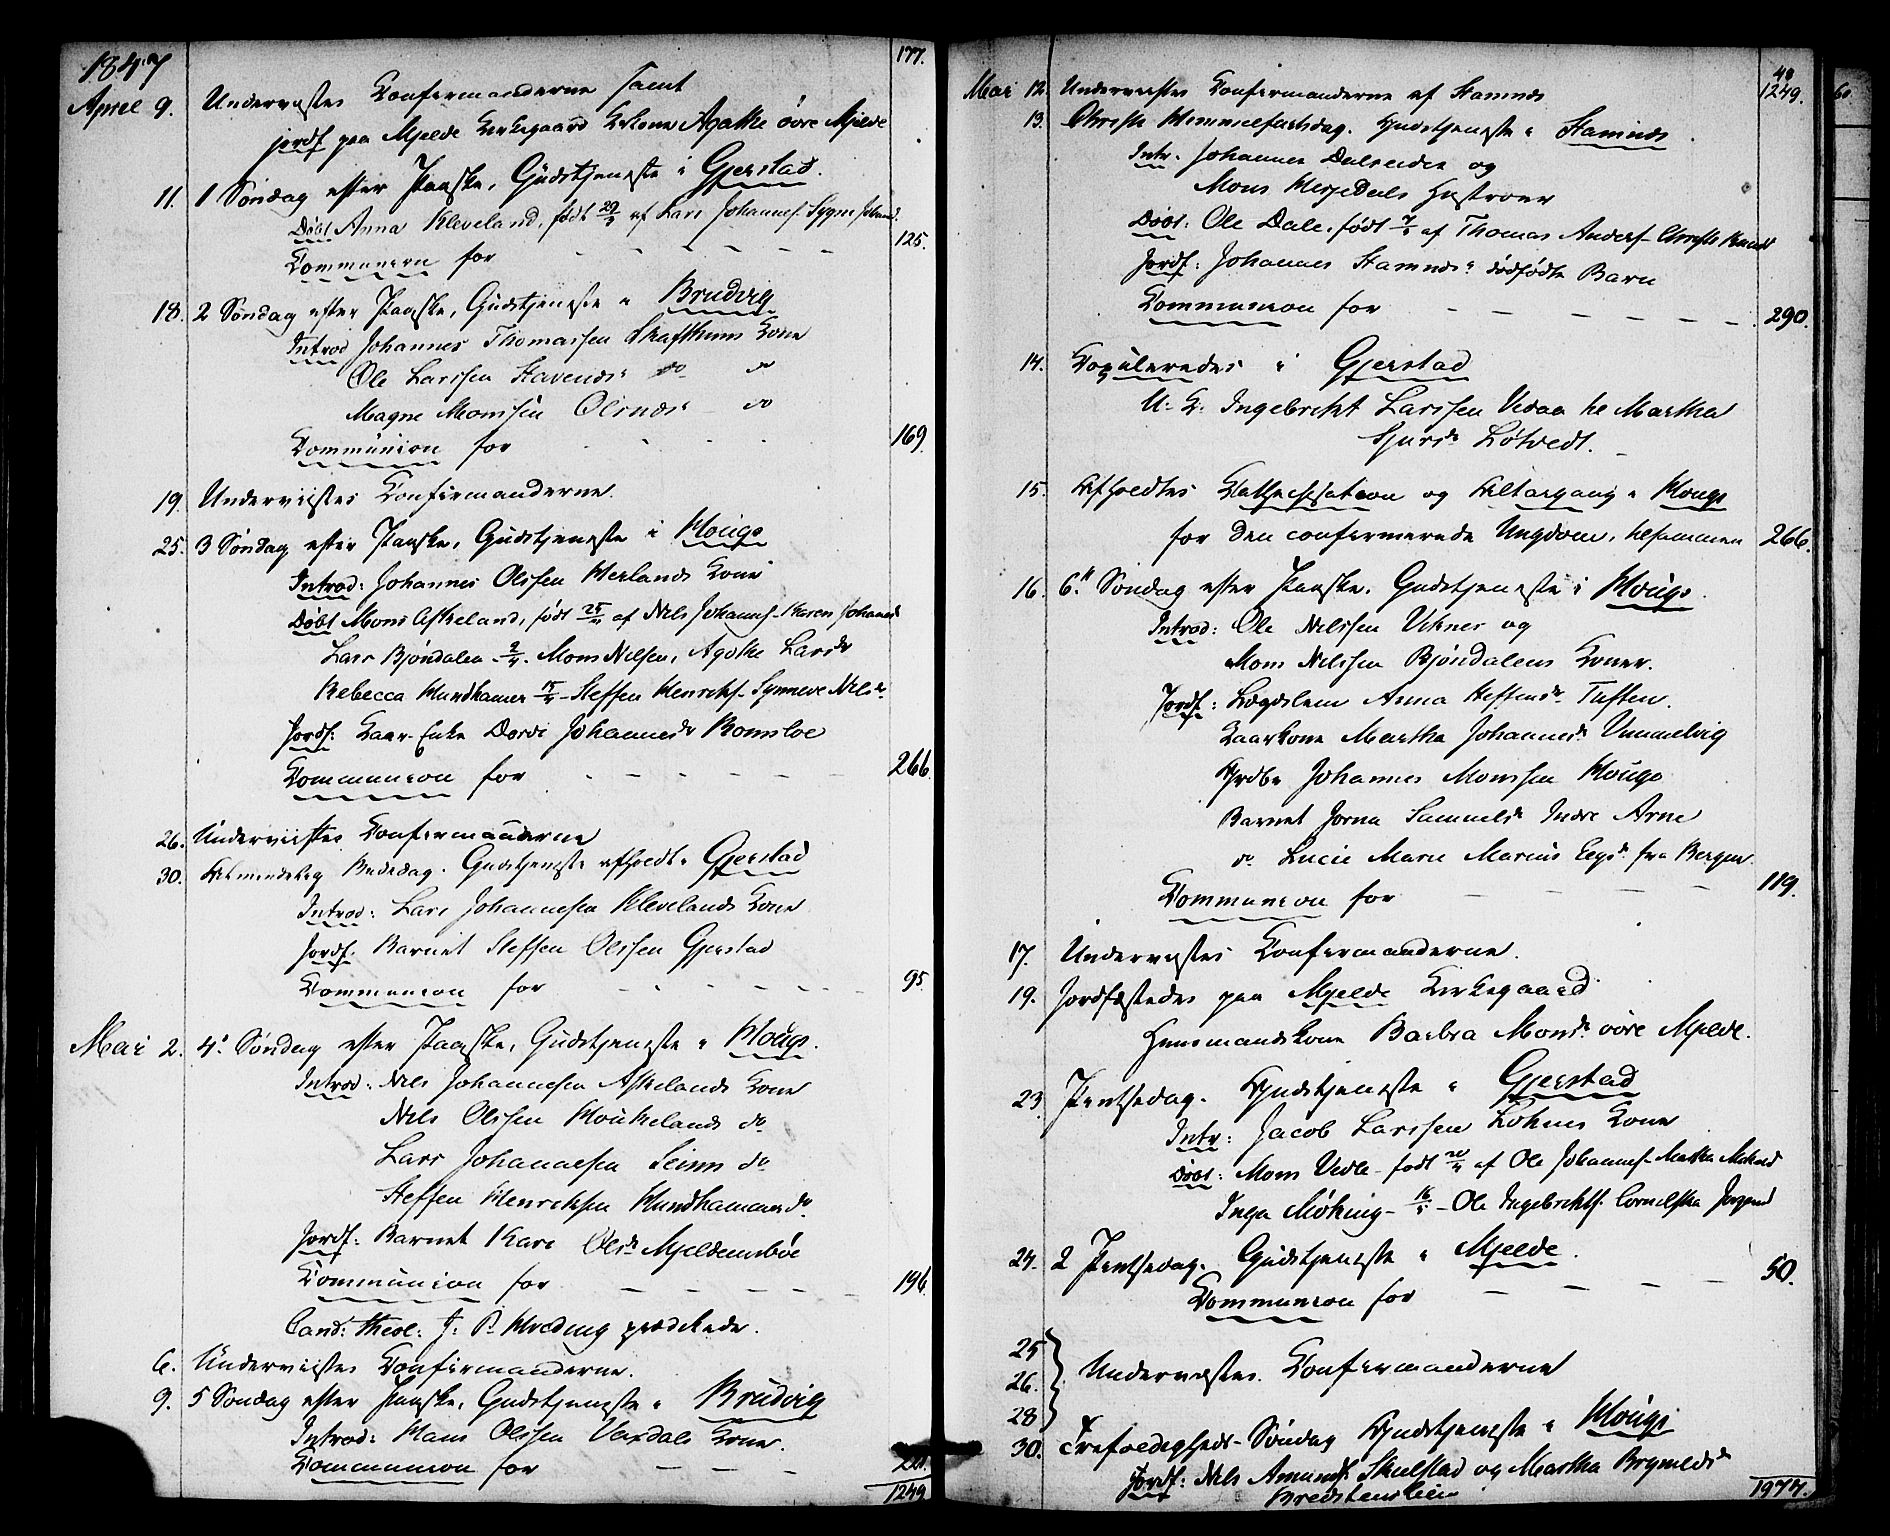 1847
177.
April 9. Underviistes Confirmanderne samt
jordf paa Mjelde Kirkegaard Kone Agathe øvre Mjelde
11. 1 Søndag efter Paaske, Gudstjeneste i Gjerstad.
Døbt Anna Kleveland, født 29/3 af Lars Johannes. Sygne Johansd.
Communion for - - - - - - 125.
18. 2 Søndag efter Paaske, Gudstjeneste i Brudvig
Introd Johannes Thomassen Skafthuns Kone
Ole Larssen Stavenes do do
Magne Monssen Olsnes do
Communion for - - - - 169
19. Underviistes Confirmanderne.
25. 3 Søndag efter Paaske, Gudstjeneste i Hougs
Introd: Johannes Olssen Herlands Kone
Døbt Mons Askeland, født 25/ af Nils Johannes. Karen Johannesd
Lars Bjøndalen - 2/4. Mons Nilsen, Agathe Larsdr
Rebecca Hundhamer 15/4 - Steffen Henriks. Synneve Nilsdr.
Jordf: Kaar-Enke Dorde Johannesdr Romsloe
Communion for - - - - - - 266.
26. Underviistes Confirmanderne
30. Almindelig Bededag. Gudstjeneste afholdt i Gjerstad
Introd: Lars Johannesen Klevelands Kone
Jordf. Barnet Steffen Olssen Gjerstad
Communion for - - - - - - 95.
Mai 2. 4. Søndag efter Paaske, Gudstjeneste i Hougs.
Introd: Nils Johannesen Askelands Kone
Nils Olssen Houkelands do
Lars Johannesen Seims do
Steffen Henriksen Hundhammer do
Jordf: Barnet Kari Olsdr Mjeldemsbøe
Communion for - - - - - 196
Cand: theol: J: P. prædikede.
6. Underviistes Confirmanderne.
9. 5 Søndag efter Paaske, Gudstjeneste i Brudvig
Introd: Hans Olssen Vaxdals Kone.
Communion for - - - - 221.
1249
48
1249.
Mai 12. Underviistes Confirmanderne af Stamnes
13. Christi Himmelfartsdag. Gudstjeneste i Stamnes.
Intr. Johannes Dalseides og
Mons Hesjedals Hustroer
Døbt: Ole Dale, født 7/5 af Thomas Anders. Christi Knudsdr
Jordf: Johannes Stamnes's dødfødte Barn
Communion for - - - - - - 290.
14. Copuleredes i Gjerstad
U: K: Ingebrikt Larssen Vedaa to Martha
Sjursdr Løtvedt.
15. Afholdtes Cathechisation og Altargang i Hougs
for den confirmerede Ungdom, tilsammen 266.
16. 6te Søndag efter Paaske. Gudstjeneste i Hougs.
Introd: Ole Nilssen Viknes og
Mons Nilssen Bjøndalens Koner.
Jordf: Lægdslem Anna Steffensdr Tuften.
Kaarkone Martha Johannesdr Vimmelvig
Johannes Monssen Hougs
Barnet Jorna Samuelsdr Indre Arne
do Lucie Marie Marius fra Bergen.
Communion for - - - 119.
17. Underviistes Confirmanderne.
19. Jordfæstedes paa Mjelde Kirkegaard
Huusmandskone Barbra Monsdr øvre Mjelde.
23. Pintsedag. Gudstjeneste i Gjerstad
Intr: Jacob Larssen Lohnes Kone
Døbt: Mons Vedle - født 20/4 af Ole Johannes. Martha Mikkelsd
Inga Møking - 16/5 - Ole Ingebrikts. Cornelska Jørgensd
24. 2 Pintsedag. Gudstjeneste i Mjelde.
Communion for - - - - 50.
25
26. Underviistes Confirmanderne
28
30. Trefoldigheds-Søndag Gudstjeneste i Hougs
Jordf: Nils Amunds. Skulstad og Martha Brynieldsdr
Bredstenslien
1977.
60